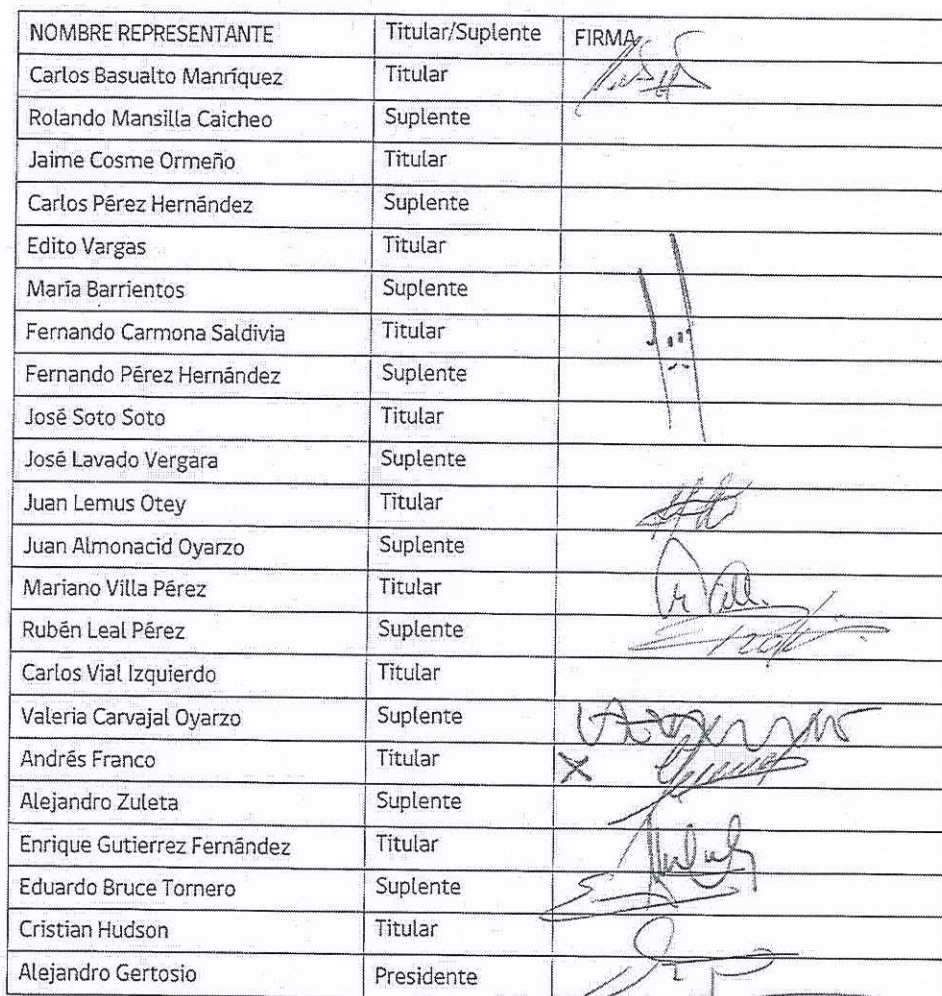 NOMBRE REPRESENTANTE Titular/Suplente FIRMA
Carlos Basualto Manríquez Titular
Rolando Mansilla Caicheo Suplente
Jaime Cosme Ormeño Titular
Carlos Pérez Hernández Suplente
Edito Vargas Titular
María Barrientos Suplente
Fernando Carmona Saldivia Titular
Fernando Pérez Hernández Suplente
José Soto Soto Titular
José Lavado Vergara Suplente
Juan Lemus Otey Titular
Juan Almonacid Oyarzo Suplente
Mariano Villa Pérez Titular
Rubén Leal Pérez Suplente
Carlos Vial Izquierdo Titular
Valeria Carvajal Oyarzo Suplente
Andrés Franco Titular X
Alejandro Zuleta Suplente
Enrique Gutierrez Fernández Titular
Eduardo Bruce Tornero Suplente
Cristian Hudson Titular
Alejandro Gertosio Presidente